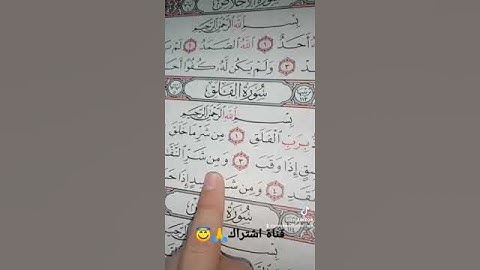 سُورَةُ الإِخْلَاصِ
بِسْمِ اللَّهِ الرَّحْمَٰنِ الرَّحِيمِ
أَحَدٌ ١ اللَّهُ الصَّمَدُ ٢ لَمْ
٣ وَلَمْ يَكُن لَّهُ كُفُوًا
سُورَةُ الْفَلَقِ
بِسْمِ اللَّهِ الرَّحْمَٰنِ الرَّحِيمِ
بِرَبِّ الْفَلَقِ ١ مِن شَرِّ مَا خَلَقَ
إِذَا وَقَبَ ٣ وَمِن شَرِّ
٤ وَمِن إِذَا
سُورَةُ
قناة اشتراك🙏😇